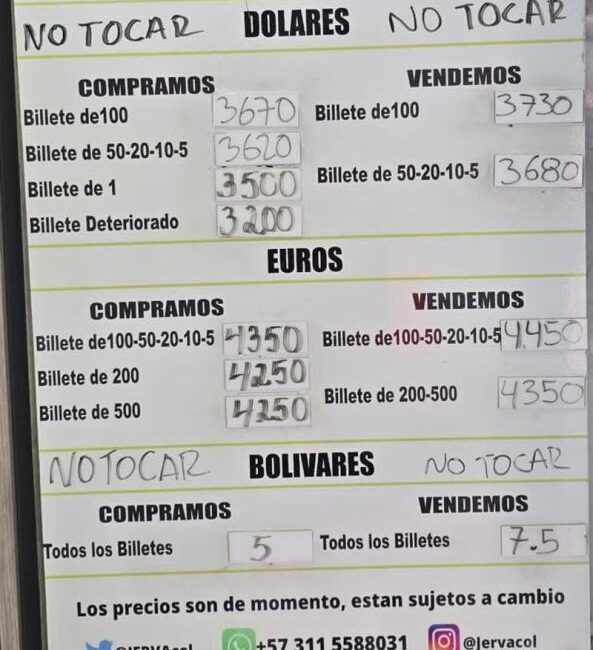 NO TOCAR DOLARES NO TOCAR
COMPRAMOS VENDEMOS
Billete de100 3670 Billete de100 3730
Billete de 50-20-10-5 3620 Billete de 50-20-10-5 3680
Billete de 1 3500
Billete Deteriorado 3200
EUROS
COMPRAMOS VENDEMOS
Billete de100-50-20-10-5 4350 Billete de100-50-20-10-5 4,450
Billete de 200 4250 Billete de 200-500 4350
Billete de 500 4250
NO TOCAR BOLIVARES NO TOCAR
COMPRAMOS VENDEMOS
Todos los Billetes 5 Todos los Billetes 7.5
Los precios son de momento, estan sujetos a cambio
@JERVAcol +57 311 5588031 @Jervacol